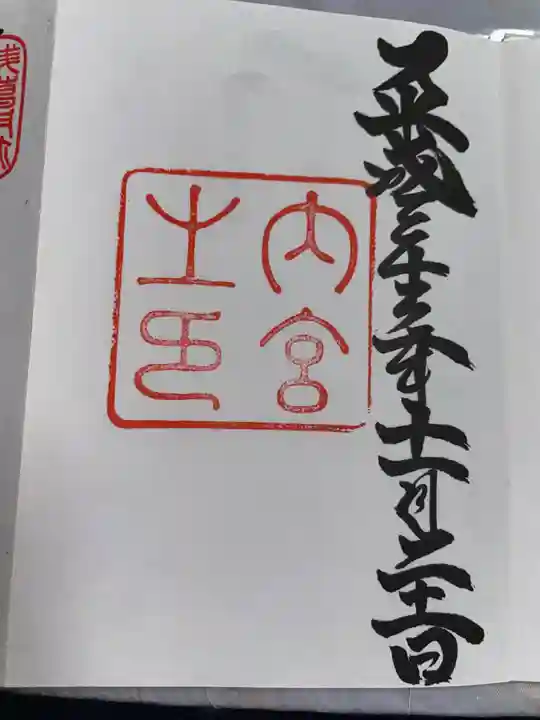 平成年十一月二十一日
内宮
之印